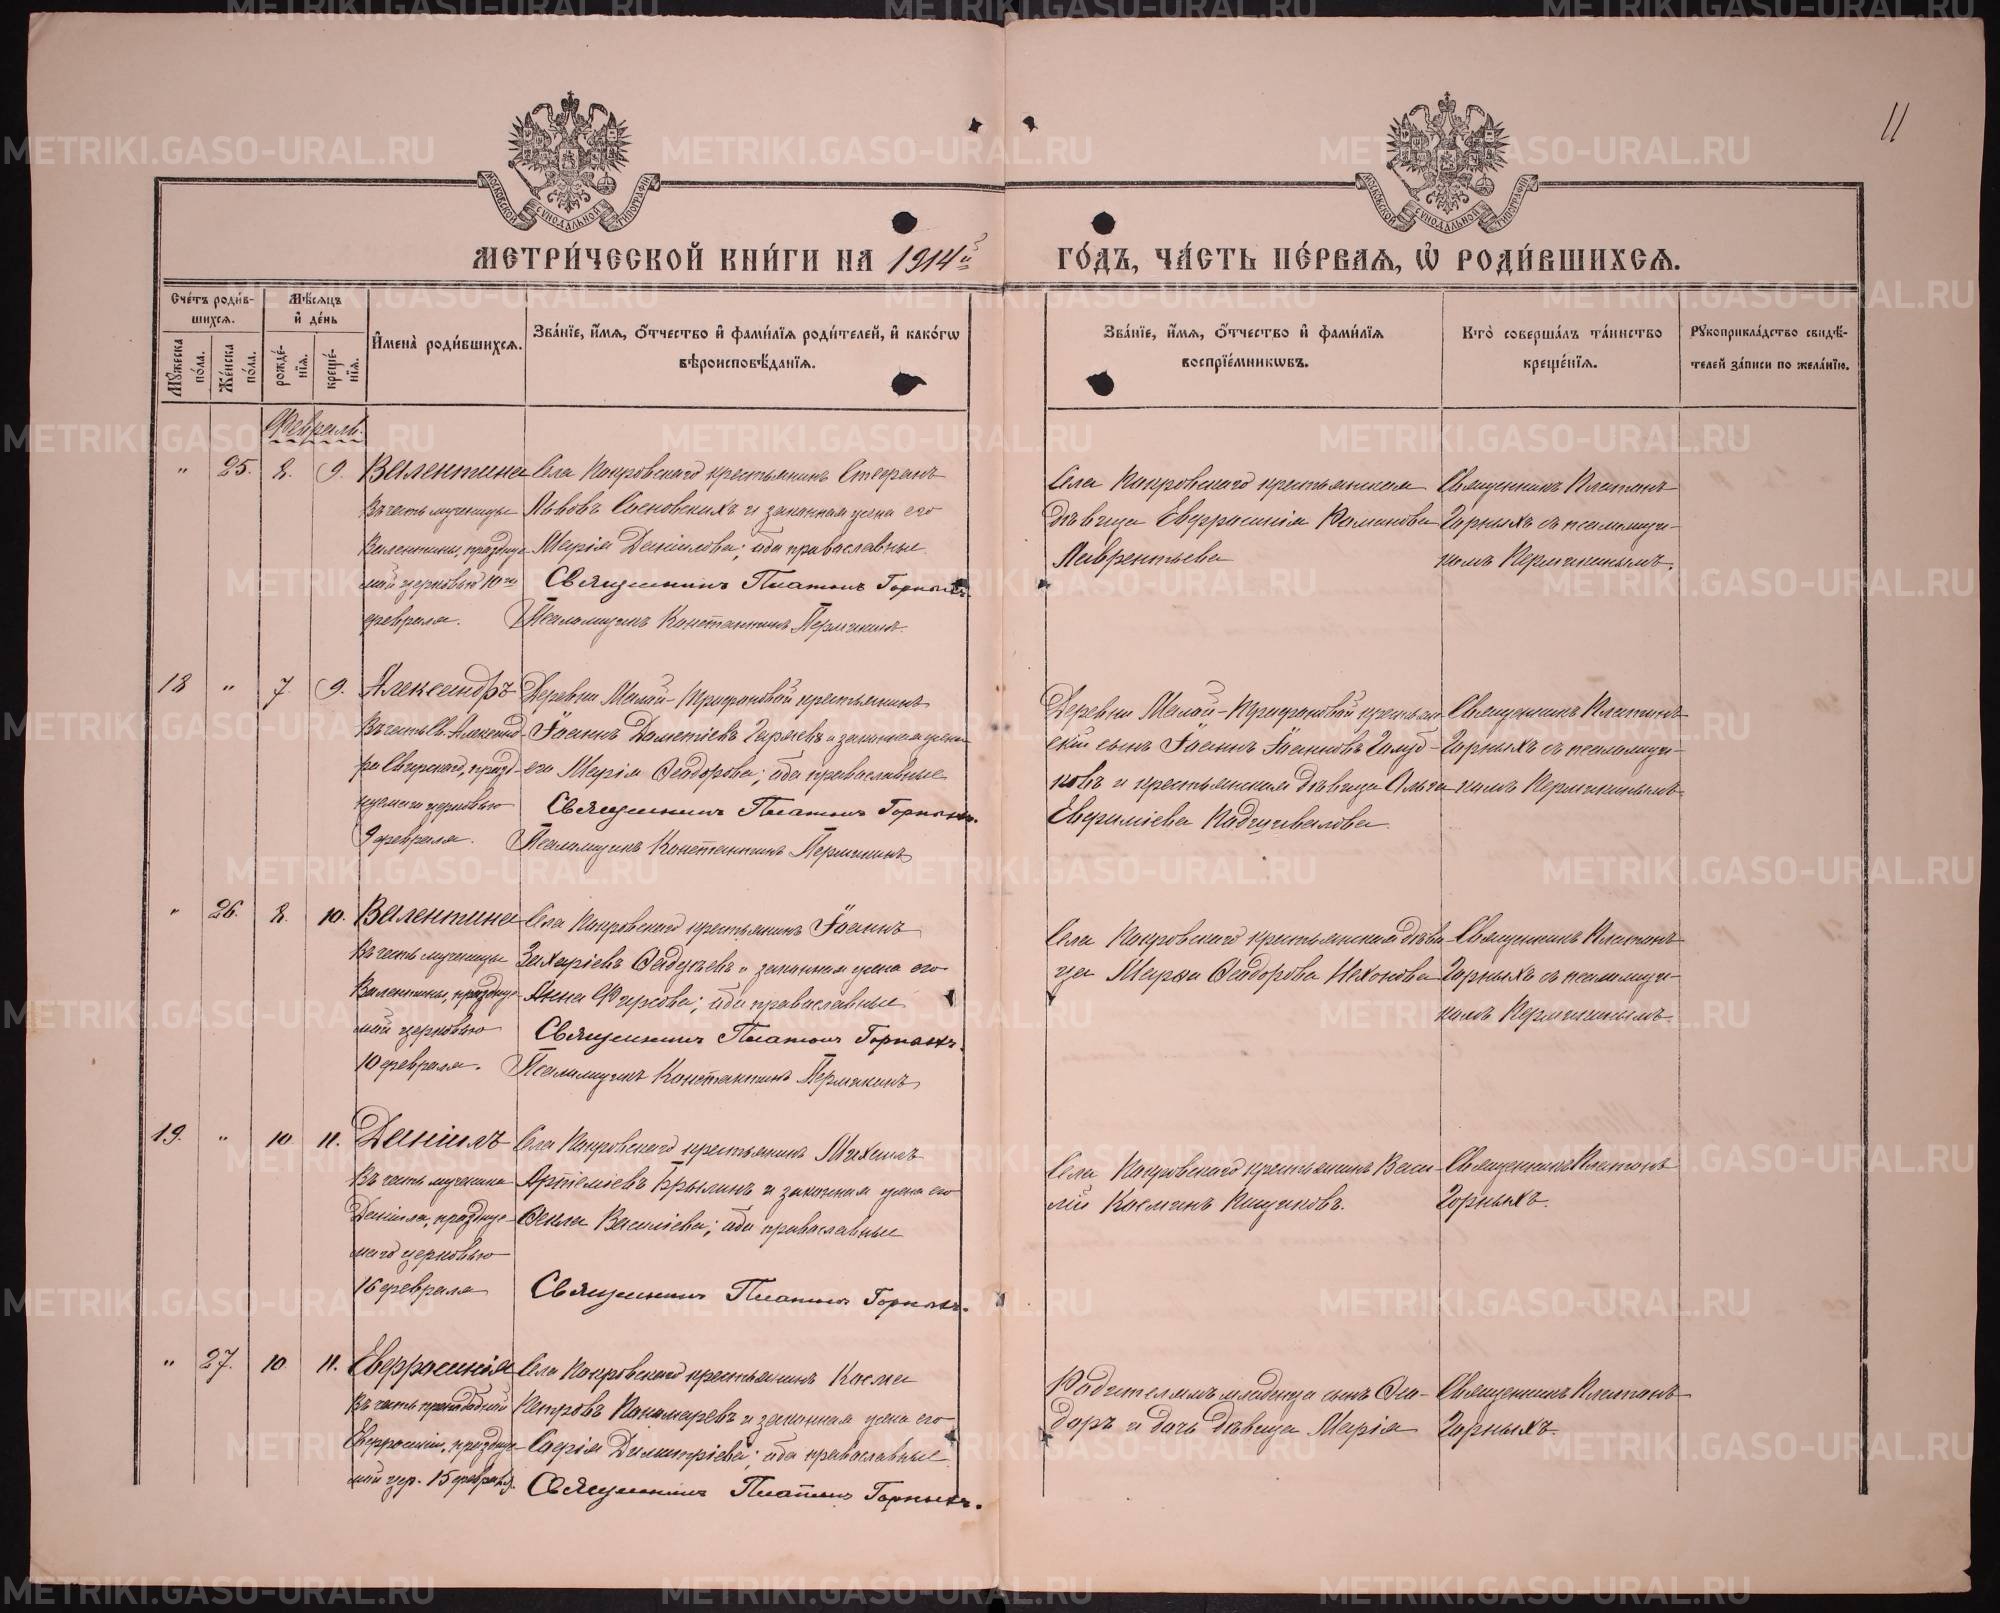 11
МОСКОВСКОЙ СѴНОДАЛЬНОЙ ТИПОГРАФІИ
МОСКОВСКОЙ СѴНОДАЛЬНОЙ ТИПОГРАФІИ
МЕТРИ́ЧЕСКОЙ КНИ́ГИ НА 1914й
ГО́ДЪ, ЧА́СТЬ ПЕ́РВАЯ, Ѡ РОДИ́ВШИХСЯ.
Сче́тъ роди́вшихся.
Му́жеска по́ла.
Же́нска по́ла.
Мѣ́сяцъ и де́нь
рожде́нїя.
креще́нїя.
Имена̀ роди́вшихся.
Зва́нїе, и́мя, о́тчество и фами́лїя роди́телей, и како́гѡ
вѣроисповѣ́данїя.
Зва́нїе, и́мя, о́тчество и фами́лїя
воспрїе́мникѡвъ.
Кто̀ соверша́лъ та́инство
креще́нїя.
Рꙋкоприкла́дство свидѣ́-
телей за́писи по жела́нїю.
Февраль.
" 25. 8. 9. Валентина
Въ честь мученицы
Валентины, праздуе-
мой церковью 10го
февраля.
Села Покровскаго крестьянинъ Стефанъ
Львовъ Сосновскихъ и законная жена его
Марія Даніилова; оба православные
Священникъ Платонъ Горныхъ.
Псаломщикъ Константинъ Пермякинъ.
Села Покровскаго крестьянская
дѣвица Евфросинія Романова
Лаврентьева
Священникъ Платонъ
Горныхъ съ псаломщи-
комъ Пермякинымъ.
18 " 7. 9. Александръ
Въ честь Св. Александ-
ра Свирскаго, празд-
нуемаго церковью
9 февраля.
Деревни Малой-Трифановой крестьянинъ
Іоаннъ Дометіевъ и законная жена
его Марія Ѳеодорова; оба православные
Священникъ Платонъ Горныхъ.
Псаломщикъ Константинъ Пермякинъ
Деревни Малой-Трифановой крестьян-
скій сынъ Іоаннъ Іоанновъ Голуб-
ковъ и крестьянская дѣвица Ольга
Евфиміева
Священникъ Платонъ
Горныхъ съ псаломщи-
комъ Пермякинымъ
" 26. 8. 10. Валентина
Въ честь мученицы
Валентины, праздуе-
мой церковью
10 февраля.
Села Покровскаго крестьянинъ Іоаннъ
Захаріевъ и законная жена его
Анна Фирсова; оба православные
Священникъ Платонъ Горныхъ.
Псаломщикъ Константинъ Пермякинъ
Села Покровскаго крестьянская дѣви-
ца Марѳа Ѳеодорова
Священникъ Платонъ
Горныхъ съ псаломщи-
комъ Пермякинымъ
19. " 10. 11. Даніилъ
Въ честь мученика
Даніила, праздуе-
маго церковью
16 февраля
Села Покровскаго крестьянинъ Михаилъ
Артеміевъ Брылинъ и законная жена его
Ѳекла Василіева; оба православные
Священникъ Платонъ Горныхъ.
Села Покровскаго крестьянинъ Васи-
лій Космичъ
Священникъ Платонъ
Горныхъ.
" 27. 10. 11. Евфросинія
Въ честь преподобной
Евфросиніи, праздуе-
мой цер. 15 февраля.
Села Покровскаго крестьянинъ Косма
Петровъ Пономаревъ и законная жена его
Софія Димитріева; оба православные
Священникъ Платонъ Горныхъ.
Родителямъ младенца сынъ Ѳео-
доръ и дочь дѣвица Марія
Священникъ Платонъ
Горныхъ.
METRIKI.GASO-URAL.RU